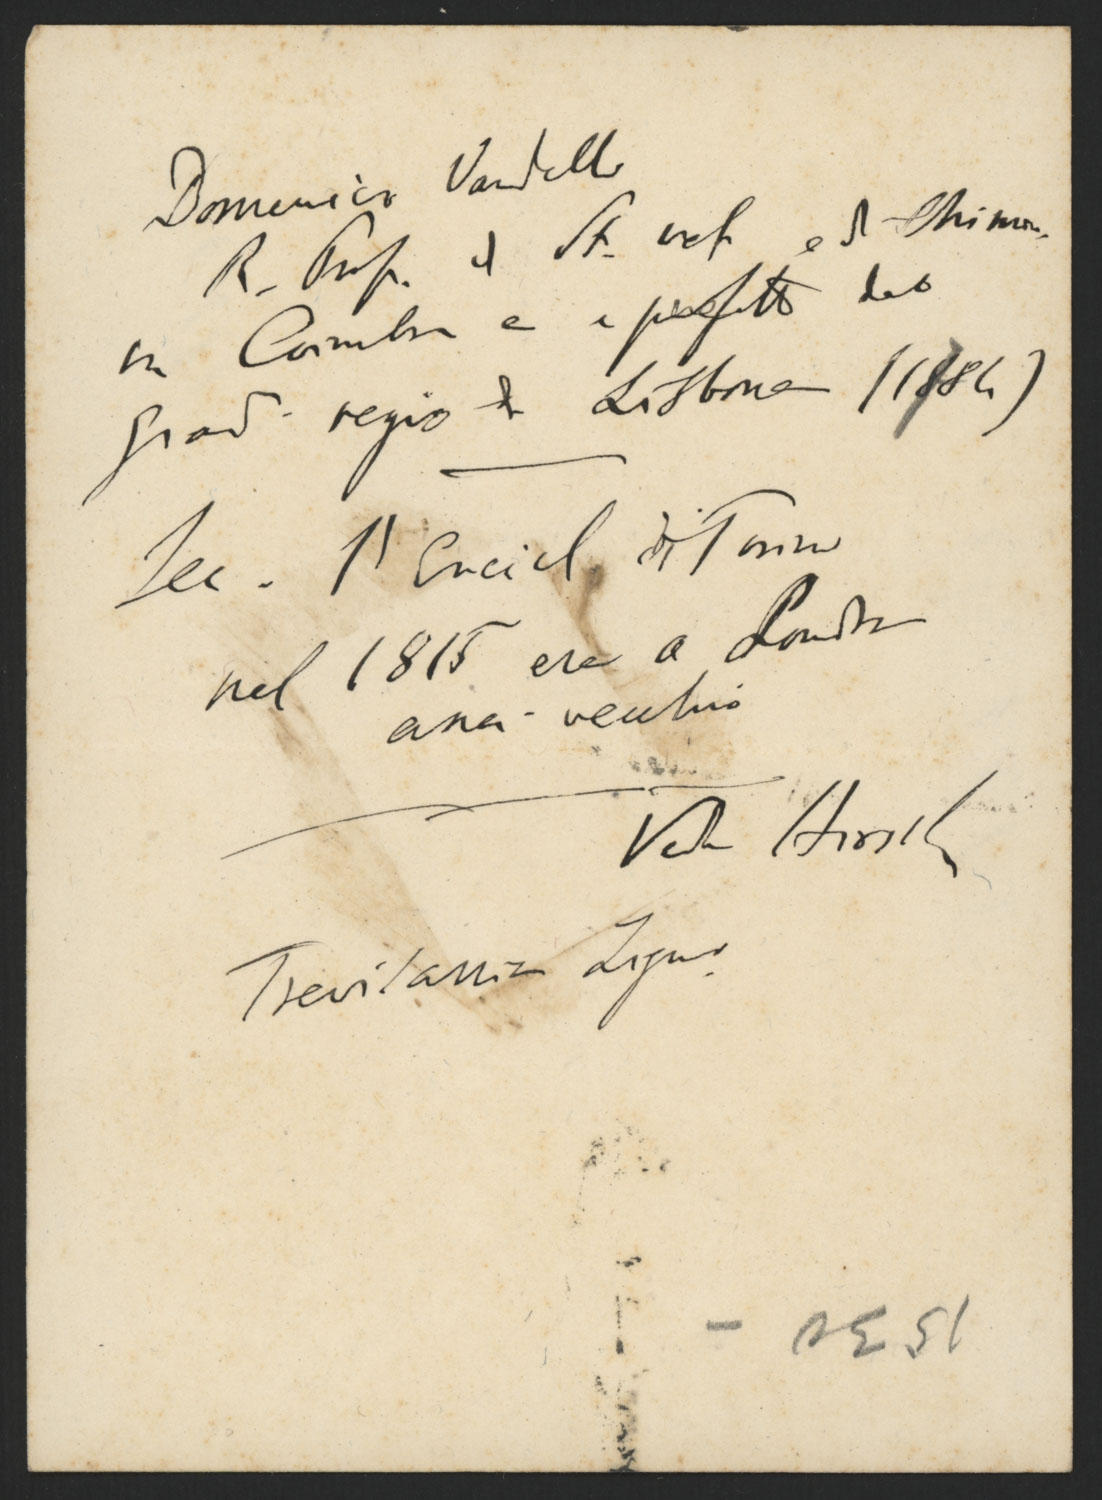 Domenico Vandelli
R. Prof. di St. nat. e di Chimic.
in Coimbra e prefetto del
giard. regio di Lisbona (1784)
Sec. l'Encicl. di Torino
nel 1815 era a Londra
assai vecchio
Hirsch